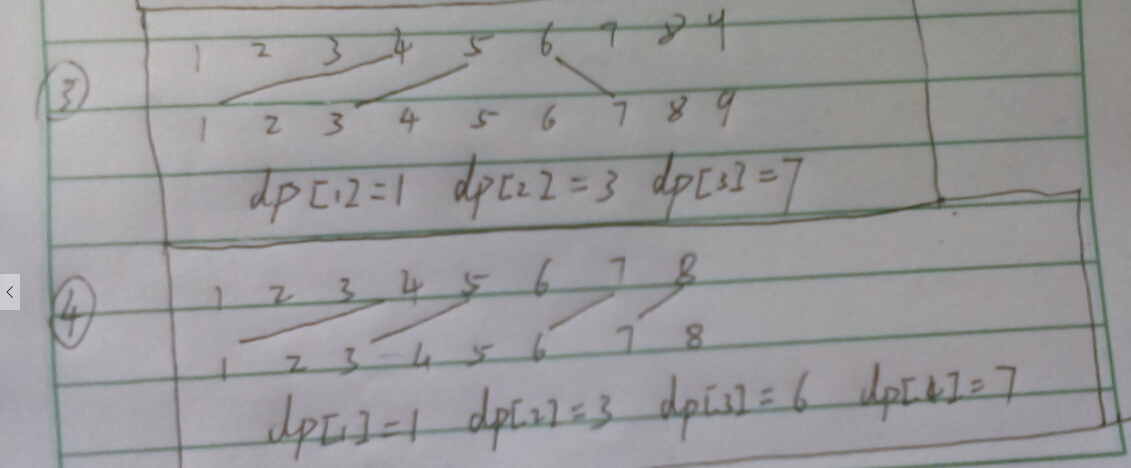 1 2 3 4 5 6 7 8 9
③
1 2 3 4 5 6 7 8 9
dp[1]=1 dp[2]=3 dp[3]=7
1 2 3 4 5 6 7 8
④
1 2 3 4 5 6 7 8
dp[1]=1 dp[2]=3 dp[3]=6 dp[4]=7